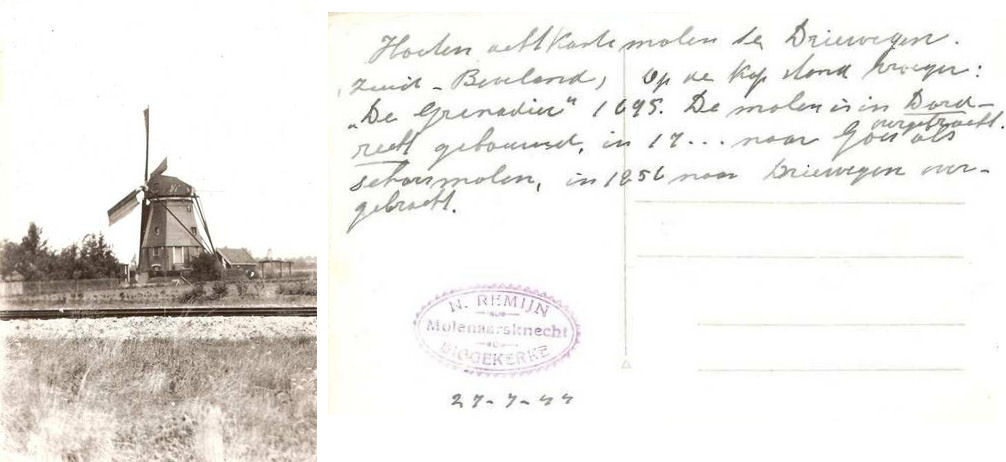 Houten achtkante molen te Driewegen.
Zuid-Beveland, Op de kap stond vroeger:
"De Grenadier" 1695. De molen is in Dord-
recht gebouwd, in 17... naar Goes als overgebracht.
schorsmolen, in 1856 naar Driewegen over-
gebracht.
N. REMIJN
Molenaarsknecht
BIGGEKERKE
27-7-44